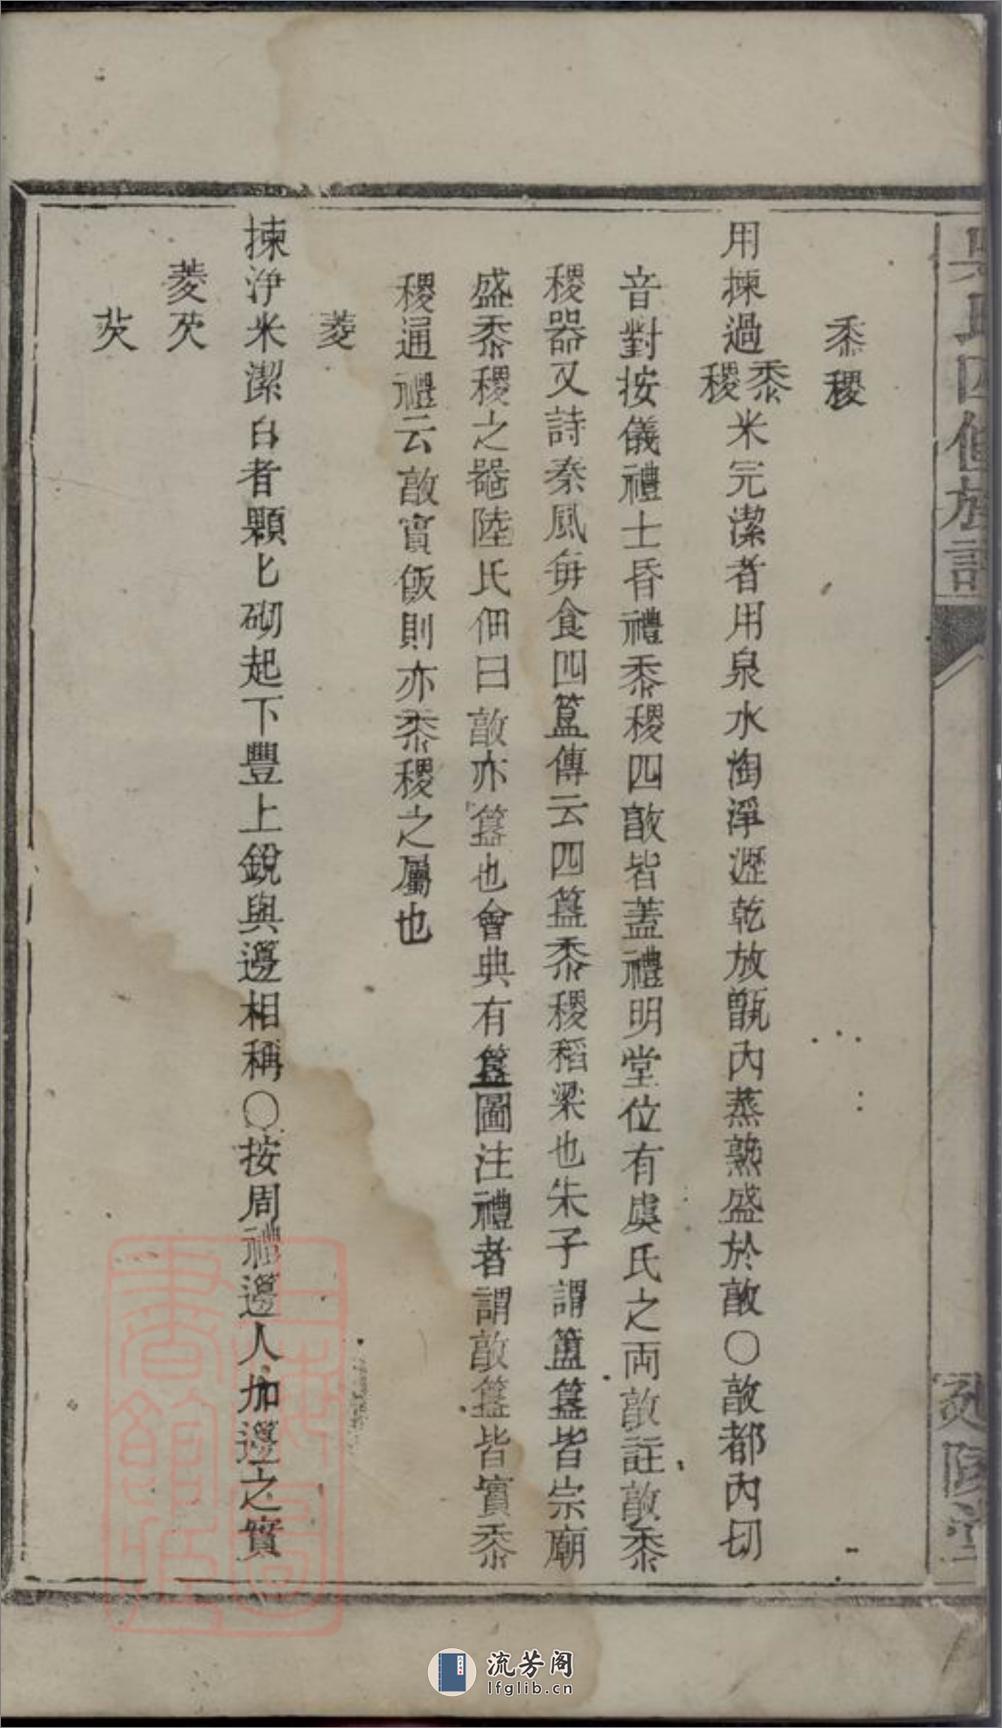 吳氏四修族譜
延陵堂
黍稷
用揀過黍稷米完潔者用泉水淘淨瀝乾放甑內蒸熟盛於敦○敦都內切
音對按儀禮士昏禮黍稷四敦皆蓋禮明堂位有虞氏之兩敦註敦黍
稷器又詩秦風每食四簋傳云四簋黍稷稻梁也朱子謂簠簋皆宗廟
盛黍稷之器陸氏佃曰敦亦簋也會典有簋圖注禮者謂敦簋皆實黍
稷通禮云敦實飯則亦黍稷之屬也
菱
揀淨米潔白者顆匕砌起下豐上銳與籩相稱○按周禮籩人加籩之實
菱芡
芡
上海圖書館藏
流芳阁
lfglib.cn